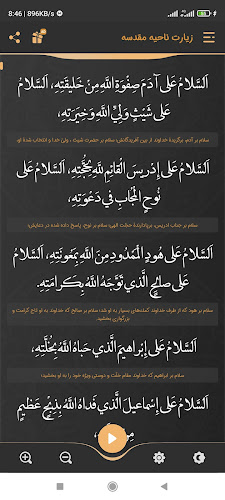 8:46 | 896KB/s
زیارت ناحیه مقدسه
اَلسَّلامُ عَلى آدَمَ صِفْوَةِ اللَّهِ مِنْ خَلیقَتِهِ، اَلسَّلامُ
عَلى شَیْثٍ وَلِیِّ اللَّهِ وَ خِیَرَتِهِ،
سلام بر آدم، برگزیدۀ خداوند از بین آفریدگانش؛ سلام بر حضرت شیث ، ولیّ خدا و انتخاب شدۀ او.
اَلسَّلامُ عَلى إِدْریسَ الْقائِمِ لِلَّهِ بِحُجَّتِهِ، اَلسَّلامُ عَلى
نُوحٍ الْمُجابِ فی دَعْوَتِهِ،
سلام بر جناب ادریس، برپادارندۀ حجّت الهی؛ سلام بر نوح، پاسخ داده شده در دعایش؛
اَلسَّلامُ عَلى هُودٍ الْمَمْدُودِ مِنَ اللَّهِ بِمَعُونَتِهِ، اَلسَّلامُ
عَلى صالِحٍ الَّذی تَوَّجَهُ اللَّهُ بِکَرامَتِهِ،
سلام بر هود که از طرف خداوند کمک‌های بسیار به او شد، سلام بر صالح که خداوند به او تاج کرامت و
بزرگواری بخشید.
اَلسَّلامُ عَلى إِبْراهیمَ الَّذی حَباهُ اللَّهُ بِخُلَّتِهِ،
سلام بر ابراهیم که خداوند مقام خلّت و دوستی ویژه خود را به او بخشید؛
اَلسَّلامُ عَلى إِسْماعیلَ الَّذی فَداهُ اللَّهُ بِذِبْحٍ عَظیمٍ